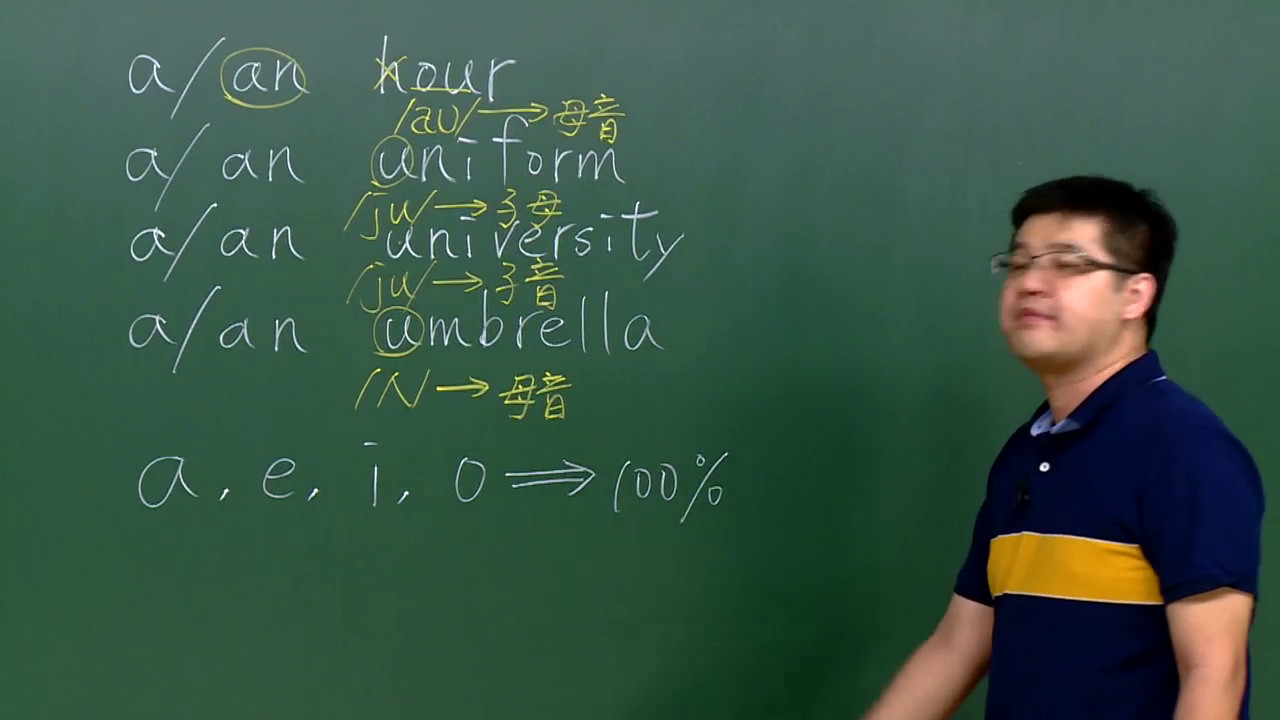 a/an hour
/aʊ/→母音
a/an uniform
/ju/→子母
a/an university
/ju/→子音
a/an umbrella
/ʌ/→母音
a, e, i, o ⇒ 100%